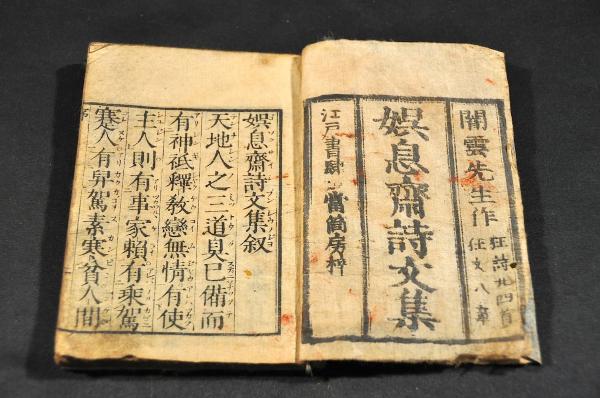 闇雲先生作
狂詩 四首
狂文八章
娯息齋詩文集
江戸書肆 簡房梓
娯息齋詩文集叙
天地人之三道具已備而
有神祇釋教戀無情有使
主人則有事家頼有乘駕
寒人有舁駕素寒貧人間